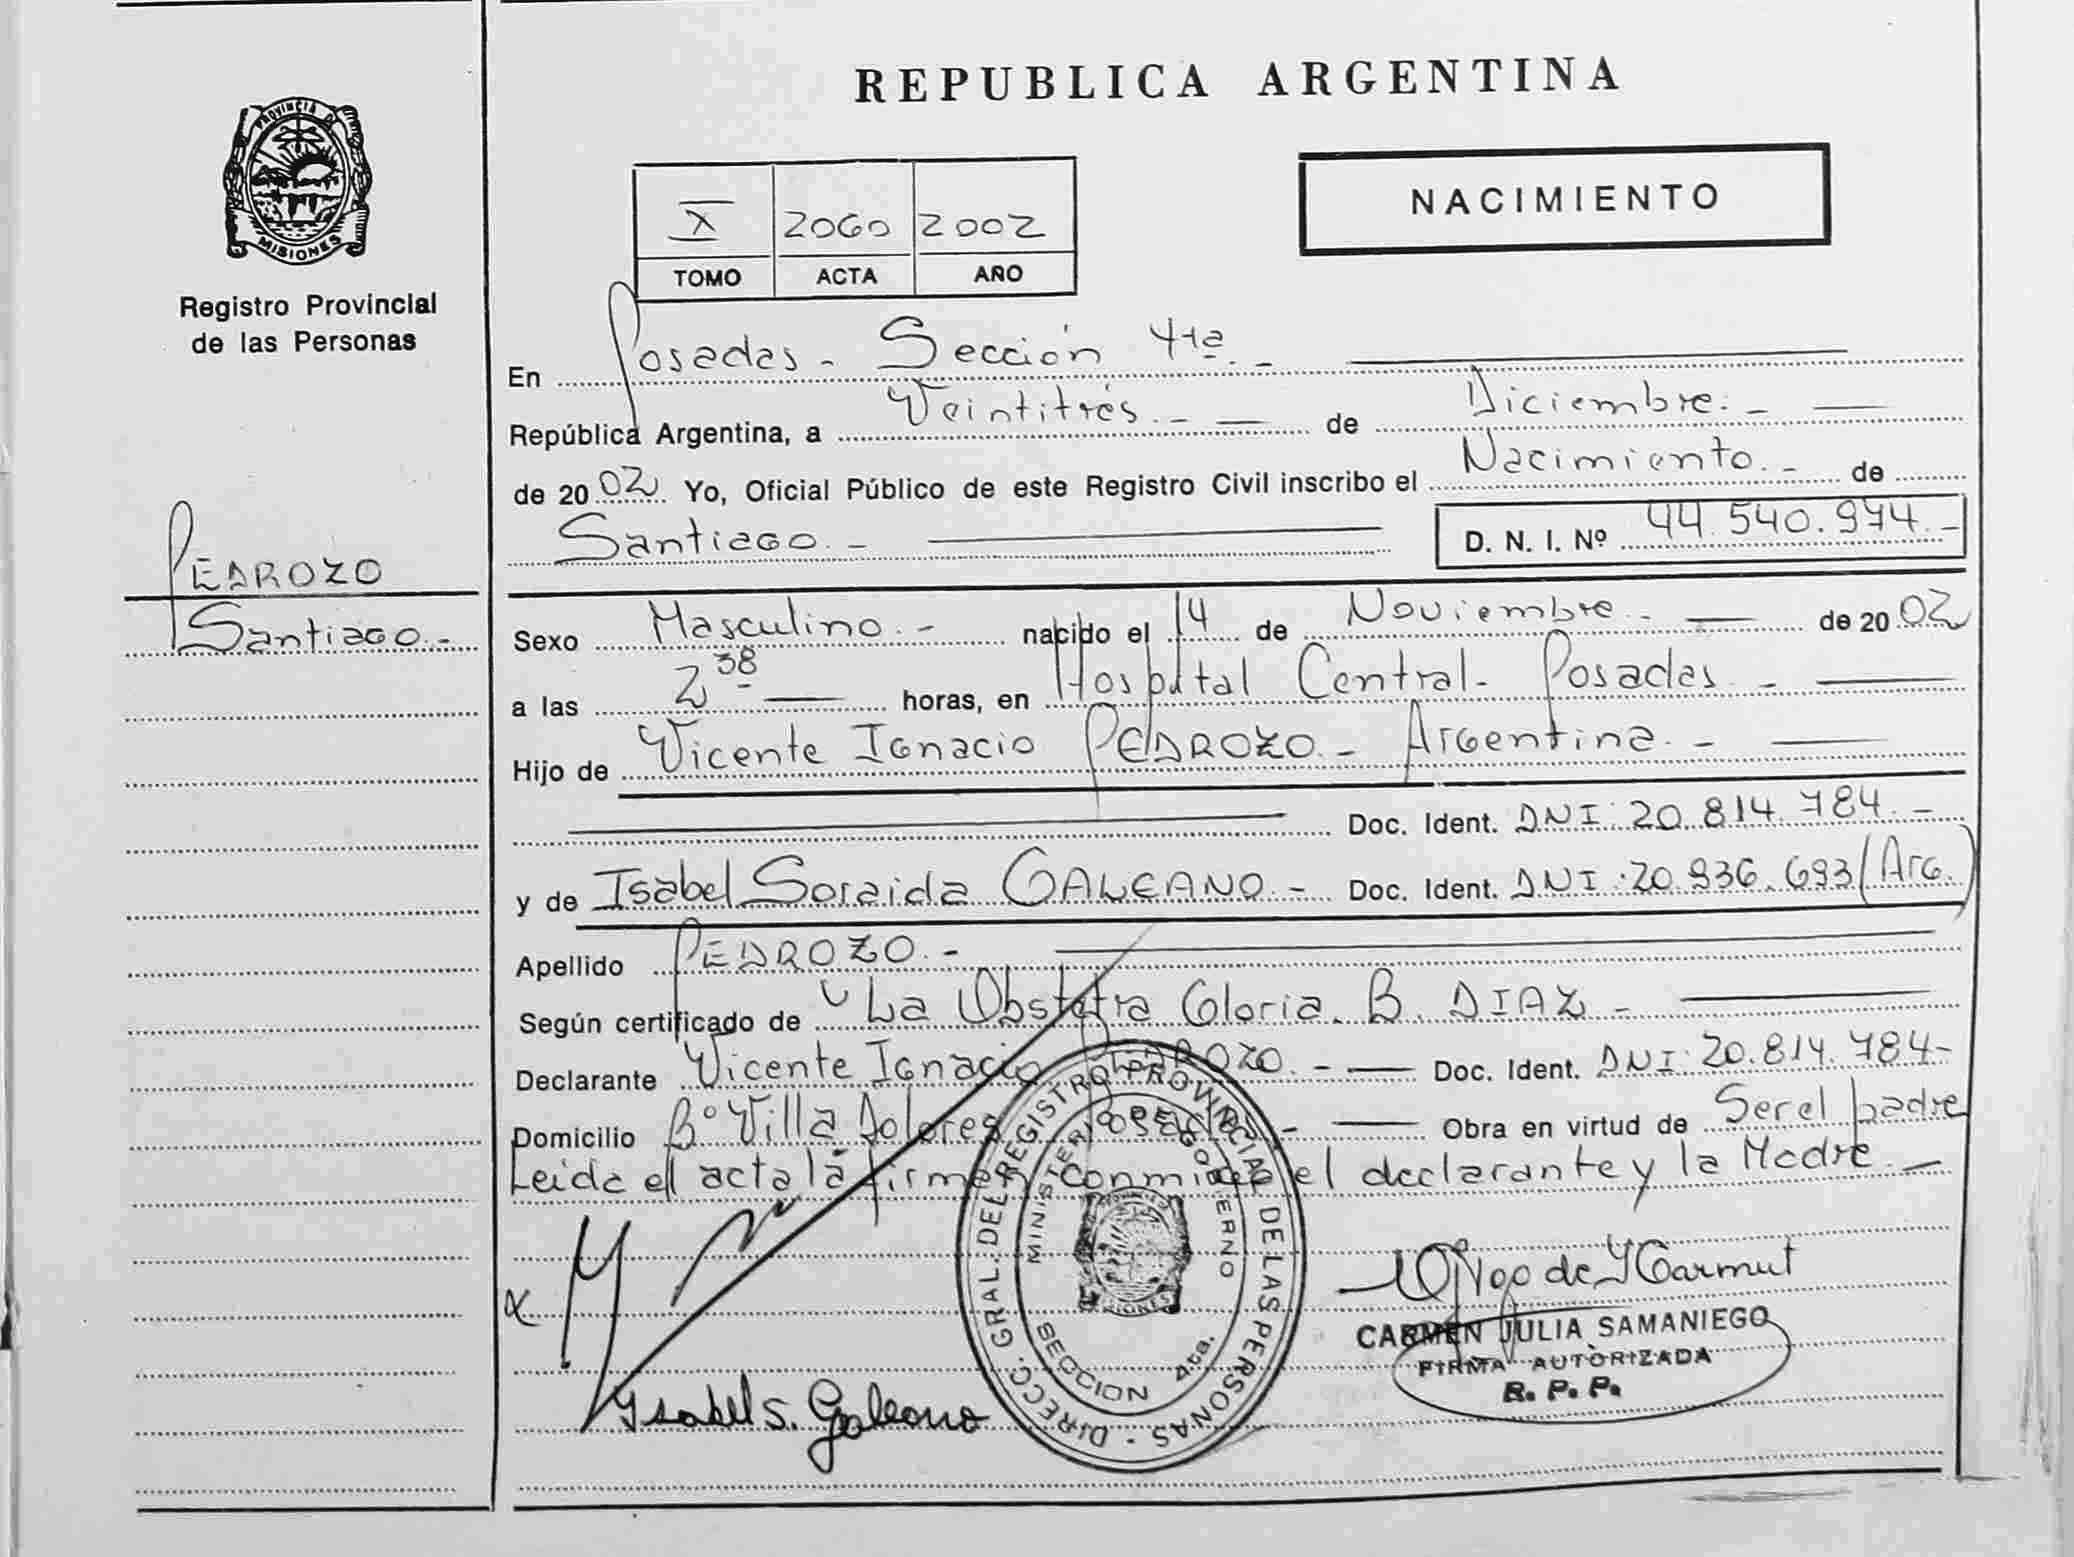 REPUBLICA ARGENTINA
PROVINCIA DE
MISIONES
Registro Provincial
de las Personas
X 2060 2002
TOMO ACTA AÑO
NACIMIENTO
En Posadas - Sección 4ta. -
República Argentina, a Veintitrés. - de Diciembre. -
de 2002 Yo, Oficial Público de este Registro Civil inscribo el Nacimiento. - de
Santiago. - D. N. I. Nº 44.540.974. -
PEDROZO
Santiago. -
Sexo Masculino. - nacido el 14 de Noviembre. - de 2002
a las 2 38 horas, en Hospital Central - Posadas. -
Hijo de Vicente Ignacio PEDROZO. - Argentina. -
Doc. Ident. DNI: 20.814.784. -
y de Isabel Soraida GALEANO. - Doc. Ident. DNI: 20.936.693 (Arg.)
Apellido PEDROZO. -
Según certificado de La Obstetra Gloria. B. DIAZ -
Declarante Vicente Ignacio PEDROZO. - Doc. Ident. DNI: 20.814.784 -
Domicilio Bº Villa Dolores Posadas - Obra en virtud de Ser el padre
Leida el acta la firman conmigo el declarante y la Madre. -
DIRECC. GRAL. DEL REGISTRO PROVINCIAL DE LAS PERSONAS
MINISTERIO DE GOBIERNO
MISIONES
SECCION 4ta.
CARMEN JULIA SAMANIEGO
FIRMA AUTORIZADA
R. P. P.
Isabel S. Galeano